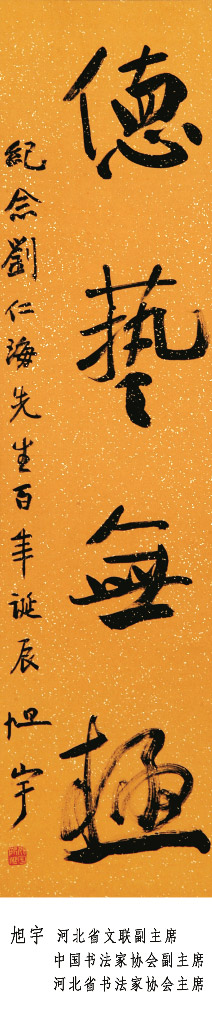 德藝無極
紀念劉仁海先生百年誕辰 旭宇
旭宇 河北省文联副主席
中国书法家协会副主席
河北省书法家协会主席